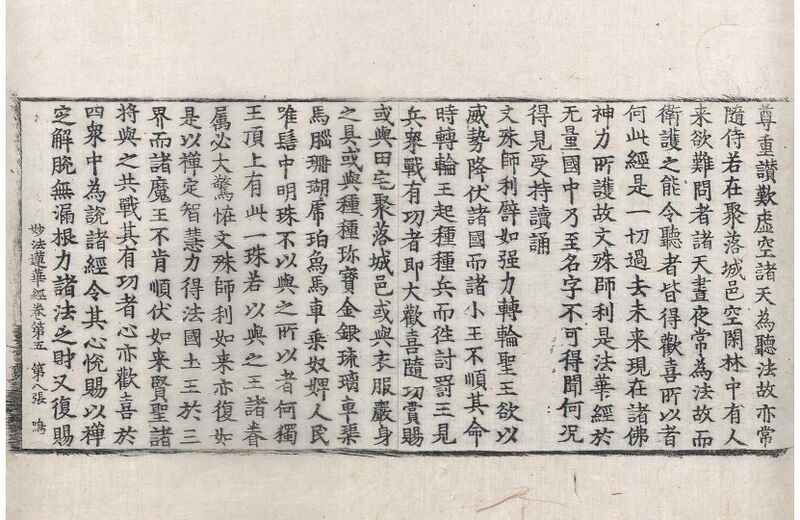 尊重讃歎虛空諸天為聽法故亦常
隨侍若在聚落城邑空閑林中有人
来欲難問者諸天晝夜常為法故而
衛護之能令聽者皆得歡喜所以者
何此經是一切過去未来現在諸佛
神力所護故文殊師利是法華經於
无量國中乃至名字不可得聞何况
得見受持讀誦
文殊師利譬如强力轉輪聖王欲以
威勢降伏諸國而諸小王不順其命
時轉輪王起種種兵而徃討罰王見
兵衆戰有功者即大歡喜隨功賞賜
或與田宅聚落城邑或與衣服嚴身
之具或與種種珎寶金銀琉璃車渠
馬腦珊瑚虎珀象馬車乘奴婢人民
唯髻中明珠不以與之所以者何獨
王頂上有此一珠若以與之王諸眷
屬必大驚恠文殊師利如来亦復如
是以禪定智慧力得法國土王於三
界而諸魔王不肯順伏如来賢聖諸
將與之共戰其有功者心亦歡喜於
四衆中為說諸經令其心悅賜以禪
定解脫無漏根力諸法之財又復賜
妙法蓮華經卷第五 第八張 鳴